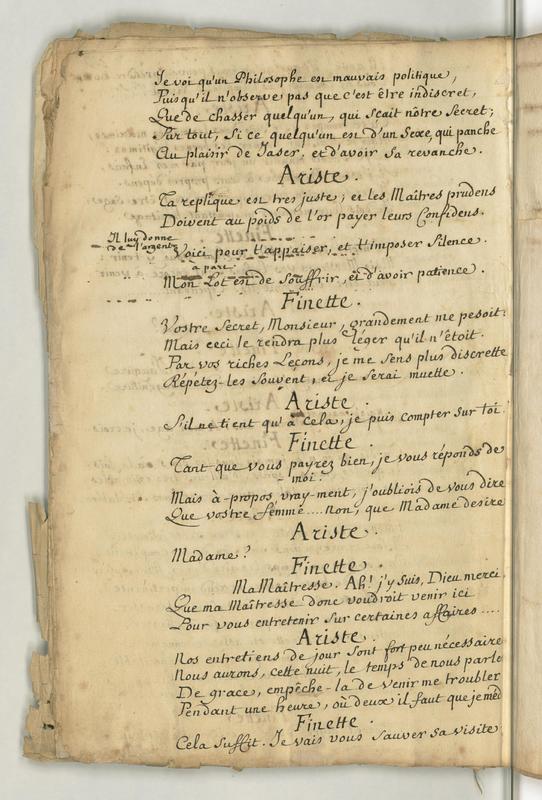 Je voi qu'un Philosophe est mauvais politique,
Puis qu'il n'observe pas que c'est être indiscret,
Que de chasser quelqu'un, qui sçait nôtre Secret;
Sur tout, Si ce quelqu'un est d'un Sexe, qui panche
Au plaisir de Jaser, et d'avoir Sa revanche.
Ariste.
Ta replique est tres juste; et les Maîtres prudens
Doivent au poids de l'or payer leurs Confidens.
Il luy donne
de l'argent
Voici pour t'appaiser, et t'imposer Silence.
à part
Mon Lot est de Souffrir, et d'avoir patience.
Finette.
Vostre Secret, Monsieur, grandement me pesoit:
Mais ceci le rendra plus léger qu'il n'étoit.
Par vos riches Leçons, je me Sens plus discrette
Répétez-les Souvent, et je Serai muette.
Ariste.
S'il ne tient qu'à cela, je puis compter Sur toi.
Finette.
Tant que vous payrez bien, je vous réponds de
moi.
Mais à-propos, vray-ment, j'oubliois de vous dire
Que vostre femme .... non, que Madame desire
Ariste.
Madame?
Finette.
Ma Maîtresse. Ah! j'y Suis, Dieu merci
Que ma Maîtresse donc voudroit venir ici
Pour vous entretenir Sur certaines affaires ....
Ariste.
Nos entretiens de jour Sont fort peu nécessaire
Nous aurons, cette nuit, le temps de nous parle
De grace, empêche-la de venir me troubler
Pendant une heure, où deux il faut que je med
Finette.
Cela Suffit. Je vais vous Sauver sa visite